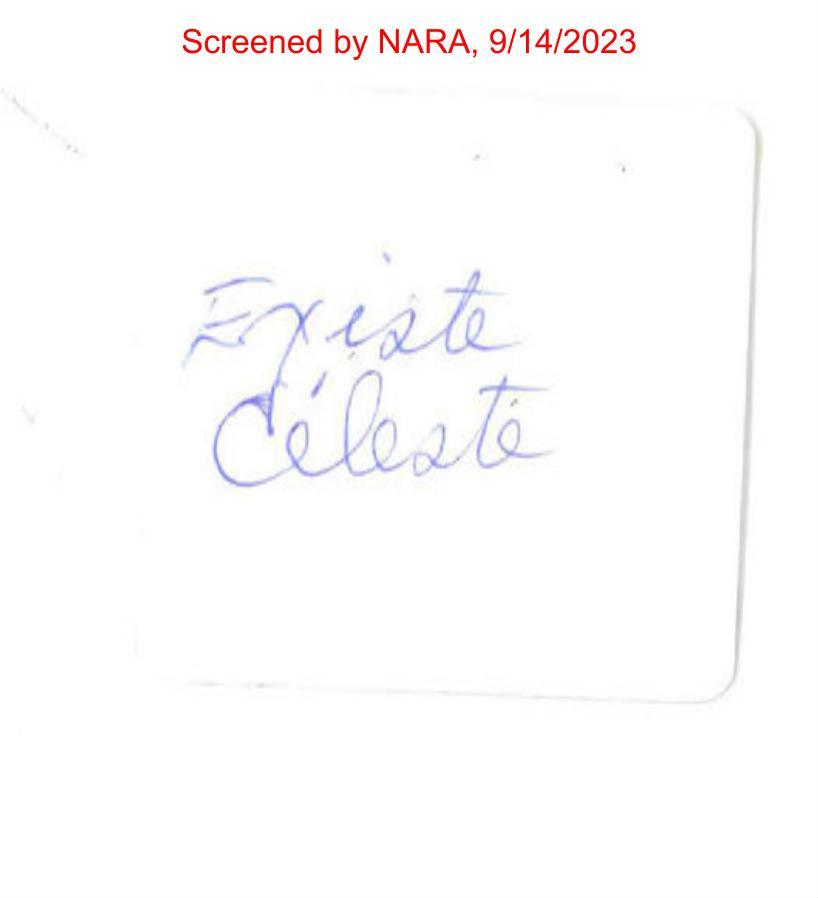 Screened by NARA, 9/14/2023
Existe
Céleste